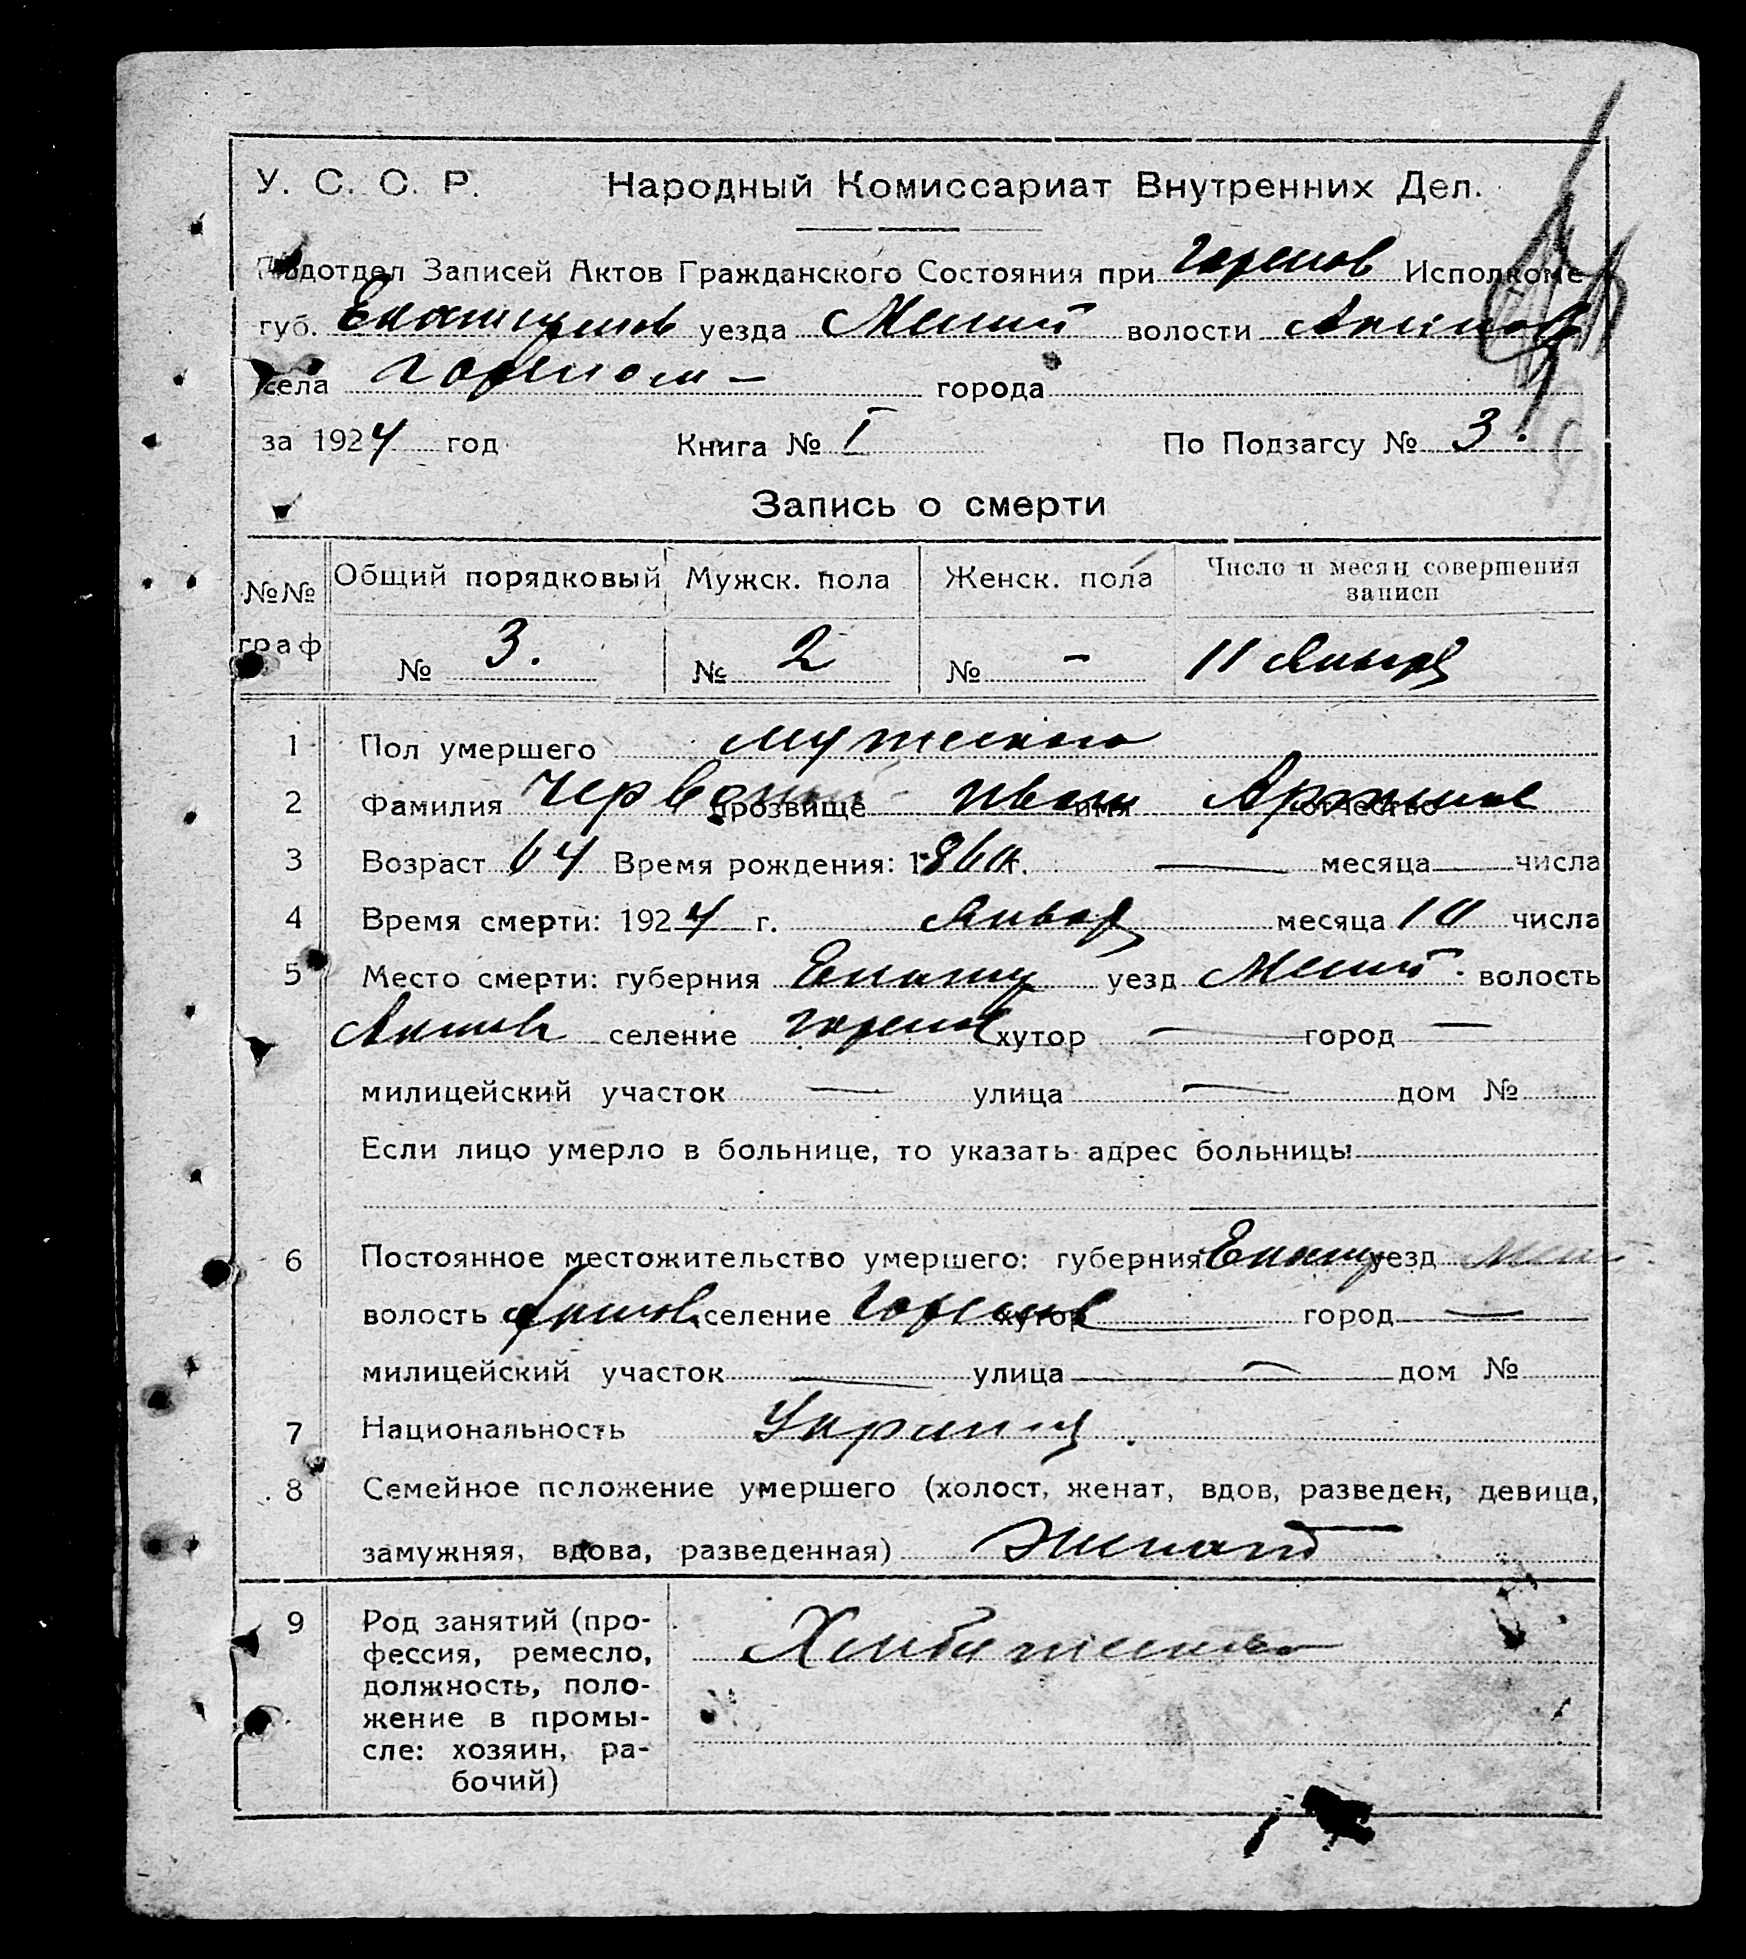 У. С. С. Р. Народный Комиссариат Внутренних Дел.
Подотдел Записей Актов Гражданского Состояния при Исполкоме
губ. уезда волости
села города
за 1924 год Книга № I По Подзагсу № 3.
Запись о смерти
№№ граф Общий порядковый Мужск. пола Женск. пола Число и месяц совершения записи
№ 3. № 2 № – 11 Января
1 Пол умершего мужского
2 Фамилия прозвище Иван имя отчество
3 Возраст 64 Время рождения: 1860 г. — месяца — числа
4 Время смерти: 1924 г. Января месяца 10 числа
5 Место смерти: губерния уезд волость
селение хутор — город —
милицейский участок — улица — дом №
Если лицо умерло в больнице, то указать адрес больницы
6 Постоянное местожительство умершего: губерния уезд
волость селение хутор город —
милицейский участок — улица — дом №
7 Национальность Украинец.
8 Семейное положение умершего (холост, женат, вдов, разведен, девица,
замужняя, вдова, разведенная) Женат
9 Род занятий (про-
фессия, ремесло,
должность, поло-
жение в промы-
сле: хозяин, ра-
бочий)